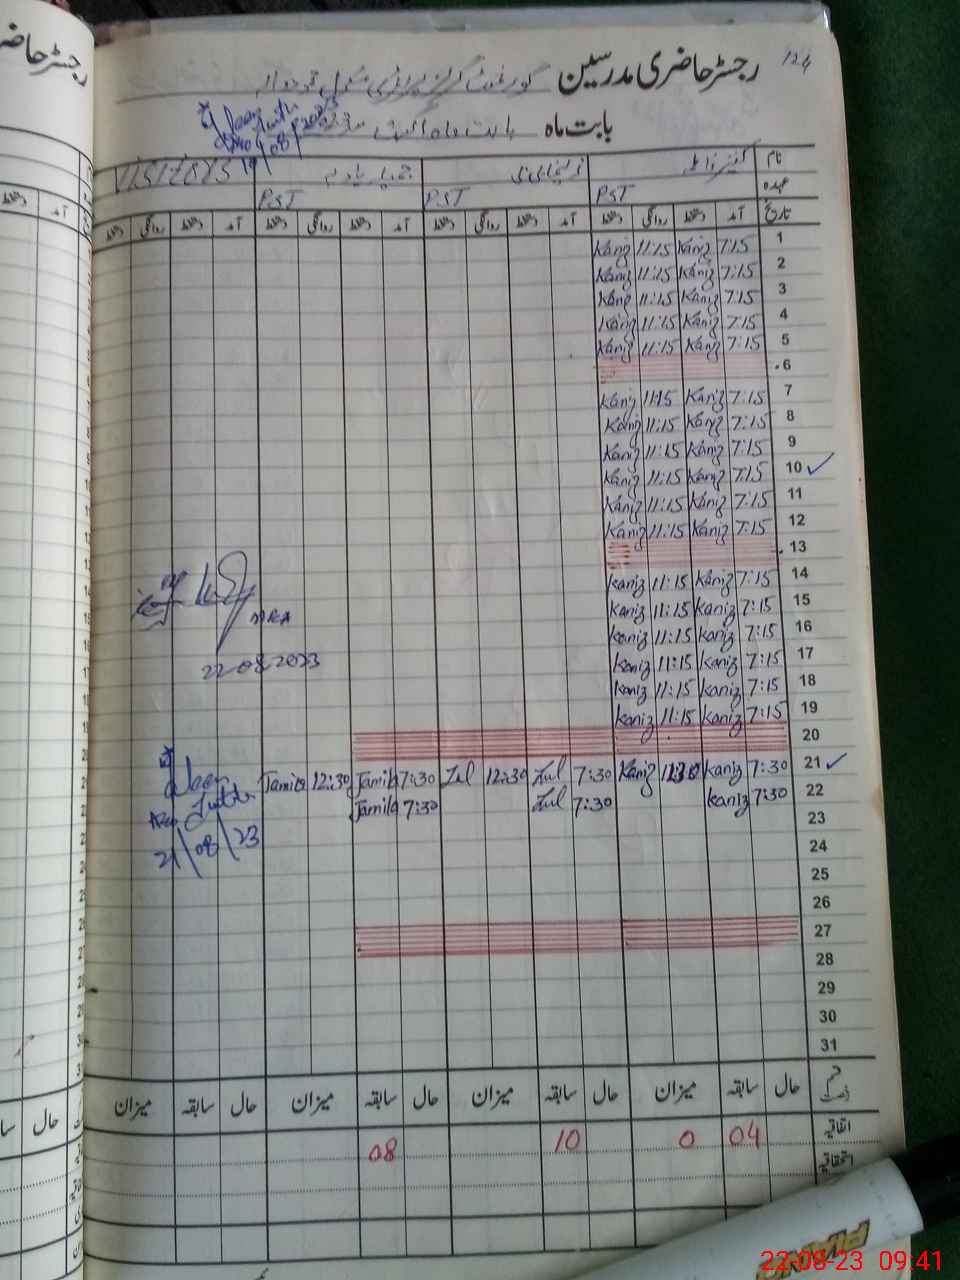 124
رجسٹر حاضری مدرسین گورنمنٹ گرلز پرائمری سکول
بابت ماہ اگست 2023
19/08/2023
نام کنیز فاطمہ VISITORS
عہدہ PST PST PST
تاریخ آمد دستخط روانگی دستخط آمد دستخط روانگی دستخط آمد دستخط روانگی دستخط آمد دستخط روانگی دستخط
1 7:15 Kaniz 11:15 Kaniz
2 7:15 Kaniz 11:15 Kaniz
3 7:15 Kaniz 11:15 Kaniz
4 7:15 Kaniz 11:15 Kaniz
5 7:15 Kaniz 11:15 Kaniz
6
7 7:15 Kaniz 11:15 Kaniz
8 7:15 Kaniz 11:15 Kaniz
9 7:15 Kaniz 11:15 Kaniz
10 7:15 Kaniz 11:15 Kaniz
11 7:15 Kaniz 11:15 Kaniz
12 7:15 Kaniz 11:15 Kaniz
13
14 7:15 Kaniz 11:15 Kaniz
15 7:15 Kaniz 11:15 Kaniz
16 7:15 Kaniz 11:15 Kaniz
17 7:15 Kaniz 11:15 Kaniz
18 7:15 Kaniz 11:15 Kaniz
19 7:15 Kaniz 11:15 Kaniz
20
21 7:30 Kaniz 12:30 Kaniz 7:30 Zul 12:30 Zul 7:30 Jamila 12:30 Jamila
22 7:30 Kaniz 7:30 Zul 7:30 Jamila
23
24
25
26
27
28
29
30
31
22-08-2023
21/08/23
حال سابقہ میزان حال سابقہ میزان حال سابقہ میزان حال سابقہ میزان
اتفاقیہ 04 0 10 08
استحقاقیہ
رجسٹر حاضری
22-08-23 09:41